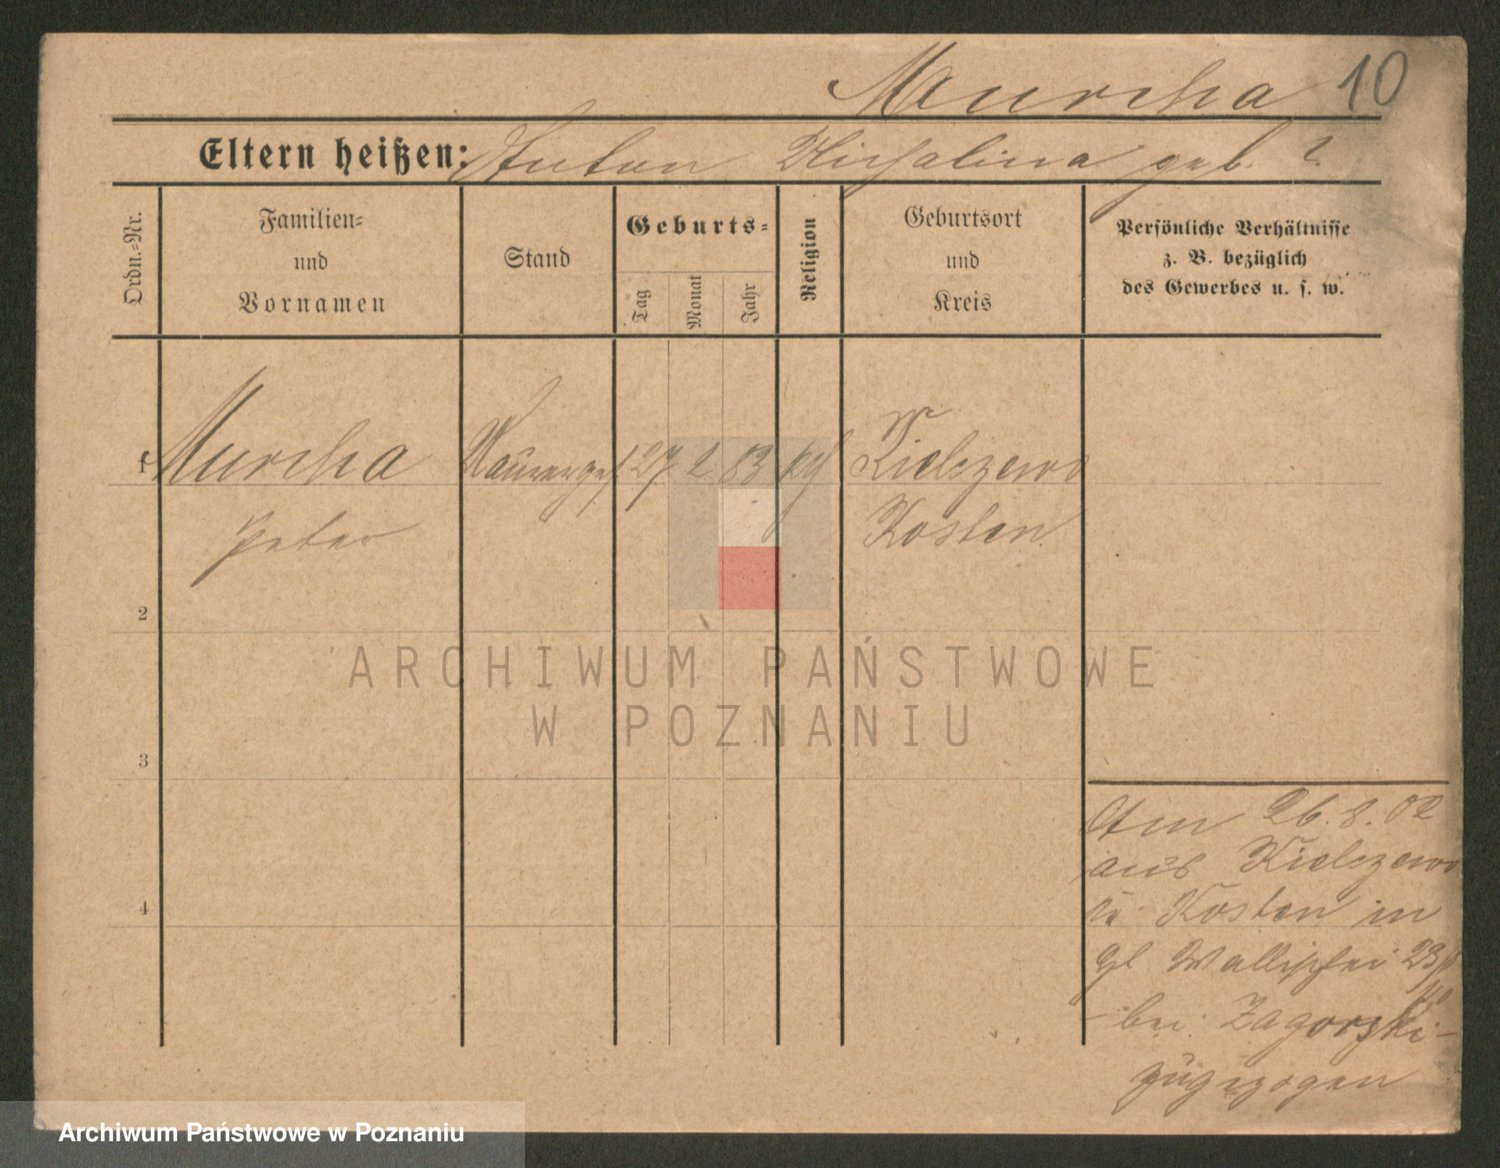 Murcha 10
Eltern heißen: Anton Michalina geb. ?
Ordn.=Nr.
Familien=
und
Vornamen
Stand
Geburts=
Tag
Monat
Jahr
Religion
Geburtsort
und
Kreis
Persönliche Verhältnisse
z. B. bezüglich
des Gewerbes u. s. w.
1 Murcha Maurerges. 27 2 83 Kielczewo
Peter Kosten
2
3
4
Am 26.8.02
aus Kielczewo
Kosten in
Wallischei 23
bei Zagorski
zugezogen
ARCHIWUM PAŃSTWOWE
W POZNANIU
Archiwum Państwowe w Poznaniu